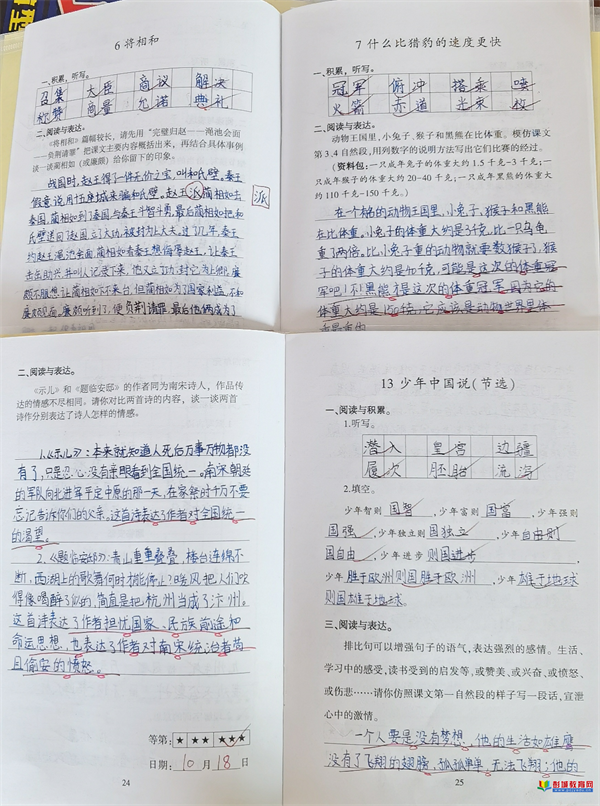 6 将相和
一、积累，听写。
召集 大臣 商议 解决
称赞 商量 允诺 典礼
二、阅读与表达。
《将相和》篇幅较长，请先用“完璧归赵——渑池会面
——负荆请罪”把课文主要内容概括出来，再结合具体事例
谈一谈蔺相如（或廉颇）给你留下的印象。
战国时，赵王得了一件无价之宝，叫和氏璧。秦王
假意说用十五座城来骗和氏璧。赵王派蔺相如去
派
秦国，蔺相如到秦国与秦王斗智斗勇，最后蔺相如把和
氏璧送回了赵国，立了大功，被封为上大夫。过了几年，秦王
约赵王渑池会面，蔺相如看秦王想侮辱赵王，让秦王
击缶助兴，并叫人记录下来，他又立了功，封它为上卿。廉
颇不服，想让蔺相如下不来台，但蔺相如为了国家利益，不和
廉颇见面，廉颇听到了，便负荆请罪，最后他俩成为了
7 什么比猎豹的速度更快
一、积累，听写。
冠军 俯冲 搭乘 喷
火箭 赤道 光束
二、阅读与表达。
动物王国里，小兔子、猴子和黑熊在比体重。模仿课文
第3、4自然段，用列数字的说明方法写出它们比赛的经过。
（资料包：一只成年兔子的体重大约1.5千克~3千克；一
只成年猴子的体重大约20~40千克；一只成年黑熊的体重大
约110千克~150千克。）
在一个遥的动物王国里，小兔子、猴子和黑熊
在比体重。小兔子的体重大约是3千克，比一只乌龟
重了两倍。比小兔子重的动物就要数猴子了，猴
子的体重大约是40千克，可能是这次的体重冠
军吧！不！黑熊才是这次的体重冠军，因为它的
体重大约是150千克，它应该是动物世界里体
二、阅读与表达。
《示儿》和《题临安邸》的作者同为南宋诗人，作品传
达的情感不尽相同。请你对比两首诗的内容，谈一谈两首
诗作分别表达了诗人怎样的情感。
1.《示儿》：本来就知道人死后万事万物都没
有了，只是忍心没有亲眼看到全国统一。南宋朝廷
的军队向北进军平定中原的那一天，在家祭时千万不要
忘记告诉你们的父亲。这首诗表达了作者对全国统一
的渴望。
2.《题临安邸》：青山重重叠叠，楼台连绵不
断，西湖上的歌舞何时才能停止？暖风把人们吹
得像喝醉了似的，简直是把杭州当成了汴州。
这首诗表达了作者担忧国家、民族前途和
命运思想，也表达了作者对南宋统治者苟
且偷安的愤怒。
等第：★★★★★
日期：10月18日
24
13 少年中国说（节选）
一、阅读与积累。
1.听写。
潜入 皇宫 边疆
履次 胚胎 流泻
2.填空。
少年智则国智，少年富则国富，少年强则
国强，少年独立则国独立，少年自由则
国自由，少年进步则国进步，
少年胜于欧洲则国胜于欧洲，少年雄于地球
则国雄于地球。
三、阅读与表达。
排比句可以增强句子的语气，表达强烈的感情。生活、
学习中的感受，读书受到的启发等，或赞美、或兴奋、或愤怒、
或伤悲……请你仿照课文第一自然段的样子写一段话，宣泄
心中的激情。
一个人要是没有梦想，他的生活如雄鹰
没有了飞翔的翅膀，孤孤单单，无法飞翔；他的
25
彭城教育网